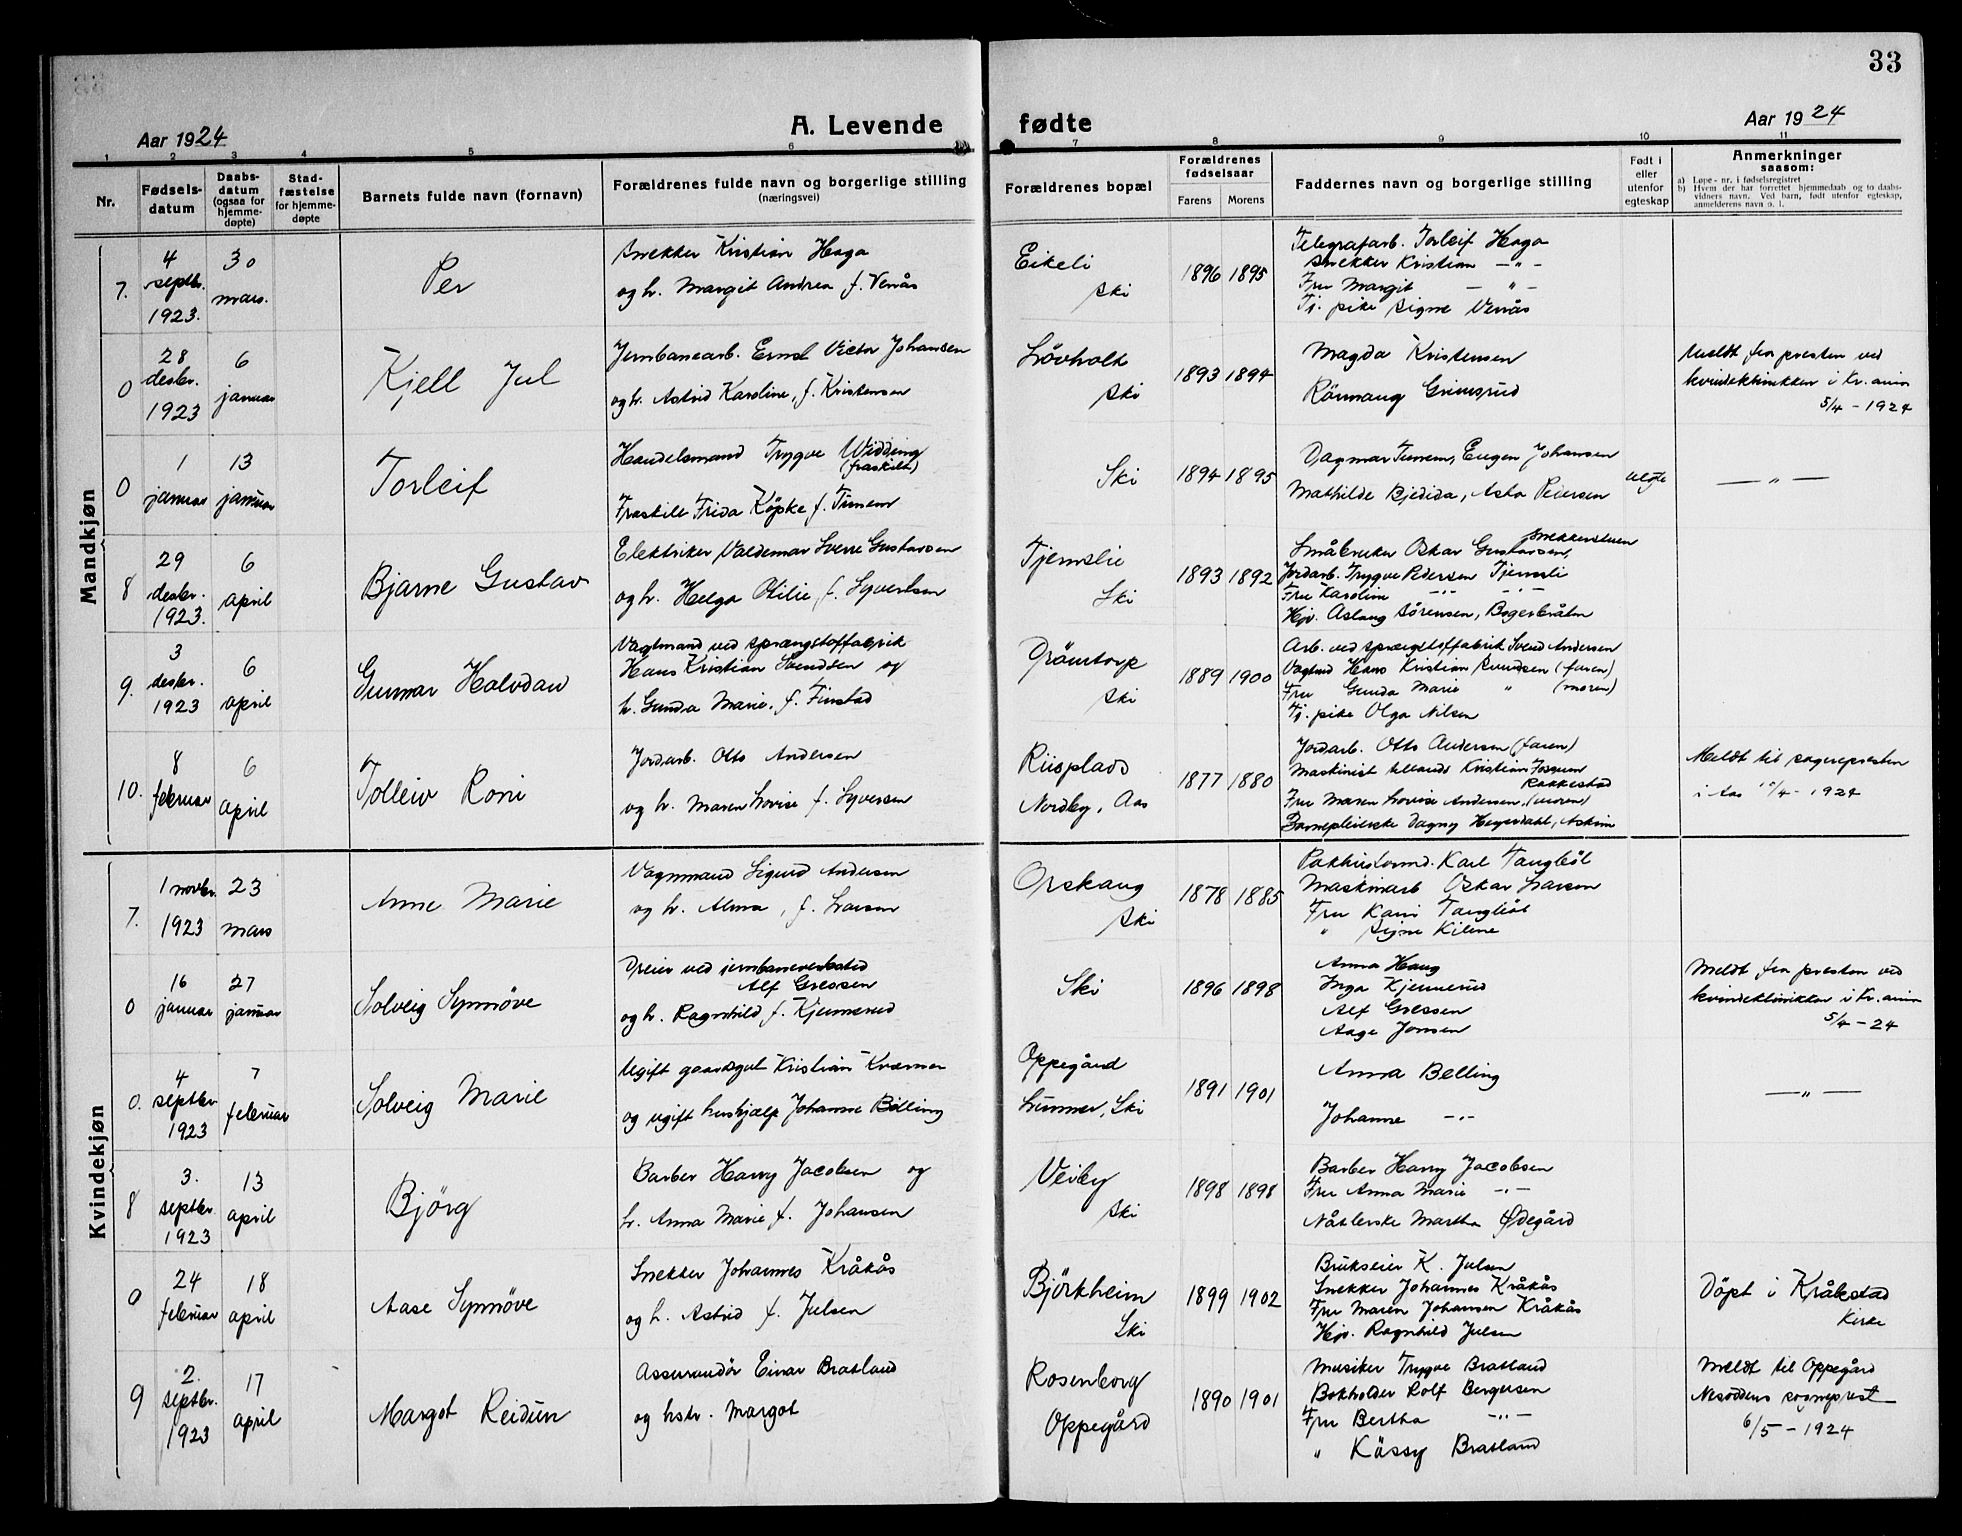 33
Aar 1924
A. Levende fødte
Aar 1924
1 2 3 4 5 6 7 8 9 10 11
Nr.
Fødsels-
datum
Daabs-
datum
(ogsaa for
hjemme-
døpte)
Stad-
fæstelse
for hjemme-
døpte
Barnets fulde navn (fornavn)
Forældrenes fulde navn og borgerlige stilling
(næringsvei)
Forældrenes bopæl
Forældrenes
fødselsaar
Farens Morens
Faddernes navn og borgerlige stilling
Født i
eller
utenfor
egteskap
Anmerkninger
saasom:
a) Løpe-nr. i fødselsregistret
b) Hvem der har forrettet hjemmedaab og to daabs-
vidners navn. Ved barn, født utenfor egteskap,
anmelderens navn o. l.
Mandkjøn
7.
4
septbr.
1923.
30
mars.
Per
Snekker Kristian Haga
og h. Margit Andrea f. Venås
Eikeli
Ski
1896 1895
Telegrafarb. Torleif Haga
Snekker Kristian -"-
Fru Margit -"-
Tj. pike Signe Venås
0
28
desbr.
1923
6
januar
Kjell Jul
Jernbanearb. Ernst Victor Johansen
og h. Astrid Karoline, f. Kristensen
Lövholt
Ski
1893 1894
Magda Kristensen
Rönnaug Grimsrud
Meldt fra presten ved
kvindeklinikken i Kr.ania
5/4 - 1924
0
1
januar
13
januar
Torleif
Handelsmand Trygve Widding
(fraskilt)
Fraskilt Frida Köpke f.
Ski
1894 1895
Dagmar Eugen Johansen
Mathilde Bjedida, Asta Petersen
uegte
- " -
8
29
desbr.
1923.
6
april
Bjarne Gustav
Elektriker Valdemar Sverre Gustavsen
og h. Helga Otilie f. Syvertsen
Tjemslie
Ski
1893 1892
Snekkerstuen
Småbruker Oskar Gustavsen,
Jordarb. Trygve Pedersen Tjemsli
Fru Karoline -"- -"-
Hjv. Aslaug Sörensen, Bøgerbråten
9.
3
desbr.
1923
6
april
Gunnar Halvdan
Vagtmand ved sprængstoffabrik
Hans Kristian Svendsen og
h. Gunda Marie, f. Finstad
Drömtorp
Ski
1889 1900
Arb. ved sprængstoffabrik Svend Andersen
Vagtmd Hans Kristian Svendsen (faren)
Fru Gunda Marie " (moren)
Tj. pike Olga Nilsen
10.
8
februar
6
april
Tolleiv Roni
Jordarb. Otto Andersen
og h. Maren Lovise f. Syversen
Riisplads
Nordby, Aas
1877 1880
Jordarb. Otto Andersen (faren)
Maskinist tillands Kristian
Rakkestad
Fru Maren Lovise Andersen, (moren)
Barnepleierske Dagny Askim
Meldt til sognepresten
i Aas /4 - 1924
Kvindekjøn
7.
1 novbr.
1923
23
mars
Anne Marie
Vognmand Sigurd Andersen
og h. Alma, f. Larsen
Orskaug
Ski
1878 1885
Karl Tangböl
Maskinarb Oskar Larsen
Fru Kari Tangböl
" Signe Kilene
0
16
januar
27
januar
Solveig Synnöve
Dreier ved jernbaneverksted
Alf Gressen
og h. Ragnhild f. Kjennerud
Ski
1896 1898
Anna Haug
Inga Kjennerud
Alf Gressen
Aage Jonsen
Meldt fra presten ved
kvindeklinikken i Kr.ania
5/4 - 24
0.
4
septbr
1923
7
februar
Solveig Marie
Ugift gaardsgut Kristian Kværner
og ugift hushjælp Johanne Bölling
Oppegård
Ski
1891 1901
Anna Belling
Johanne -"-
- " -
8
3.
septbr
1923
13
april
Björg
Barber Harry Jacobsen og
h. Anna Marie f. Johansen
Veiby
Ski
1898 1898
Barber Harry Jacobsen
Fru Anna Marie -"-
Nåtlerske Martha Ødegård
9
24
februar
18
april
Aase Synnöve
Snekker Johannes Kråkås
og h. Astrid f. Julsen
Björkheim
Ski
1899 1902
Brukseier K. Julsen
Snekker Johannes Kråkås
Fru Maren Johansen Kråkås
Hjv. Ragnhild Julsen
Döpt i Kråkstad
Kirke
9
2.
septbr.
1923
17
april
Margot Reidun
Assurandör Einar Bratland
og hstr. Margot
Rosenborg
Oppegård
1890 1901
Musiker Trygve Bratland
Bokholder Rolf Bergersen
Fru Bertha -"-
" Kässy Bratland
Meldt til Oppegård
Nesoddens sogneprest
6/5 - 1924